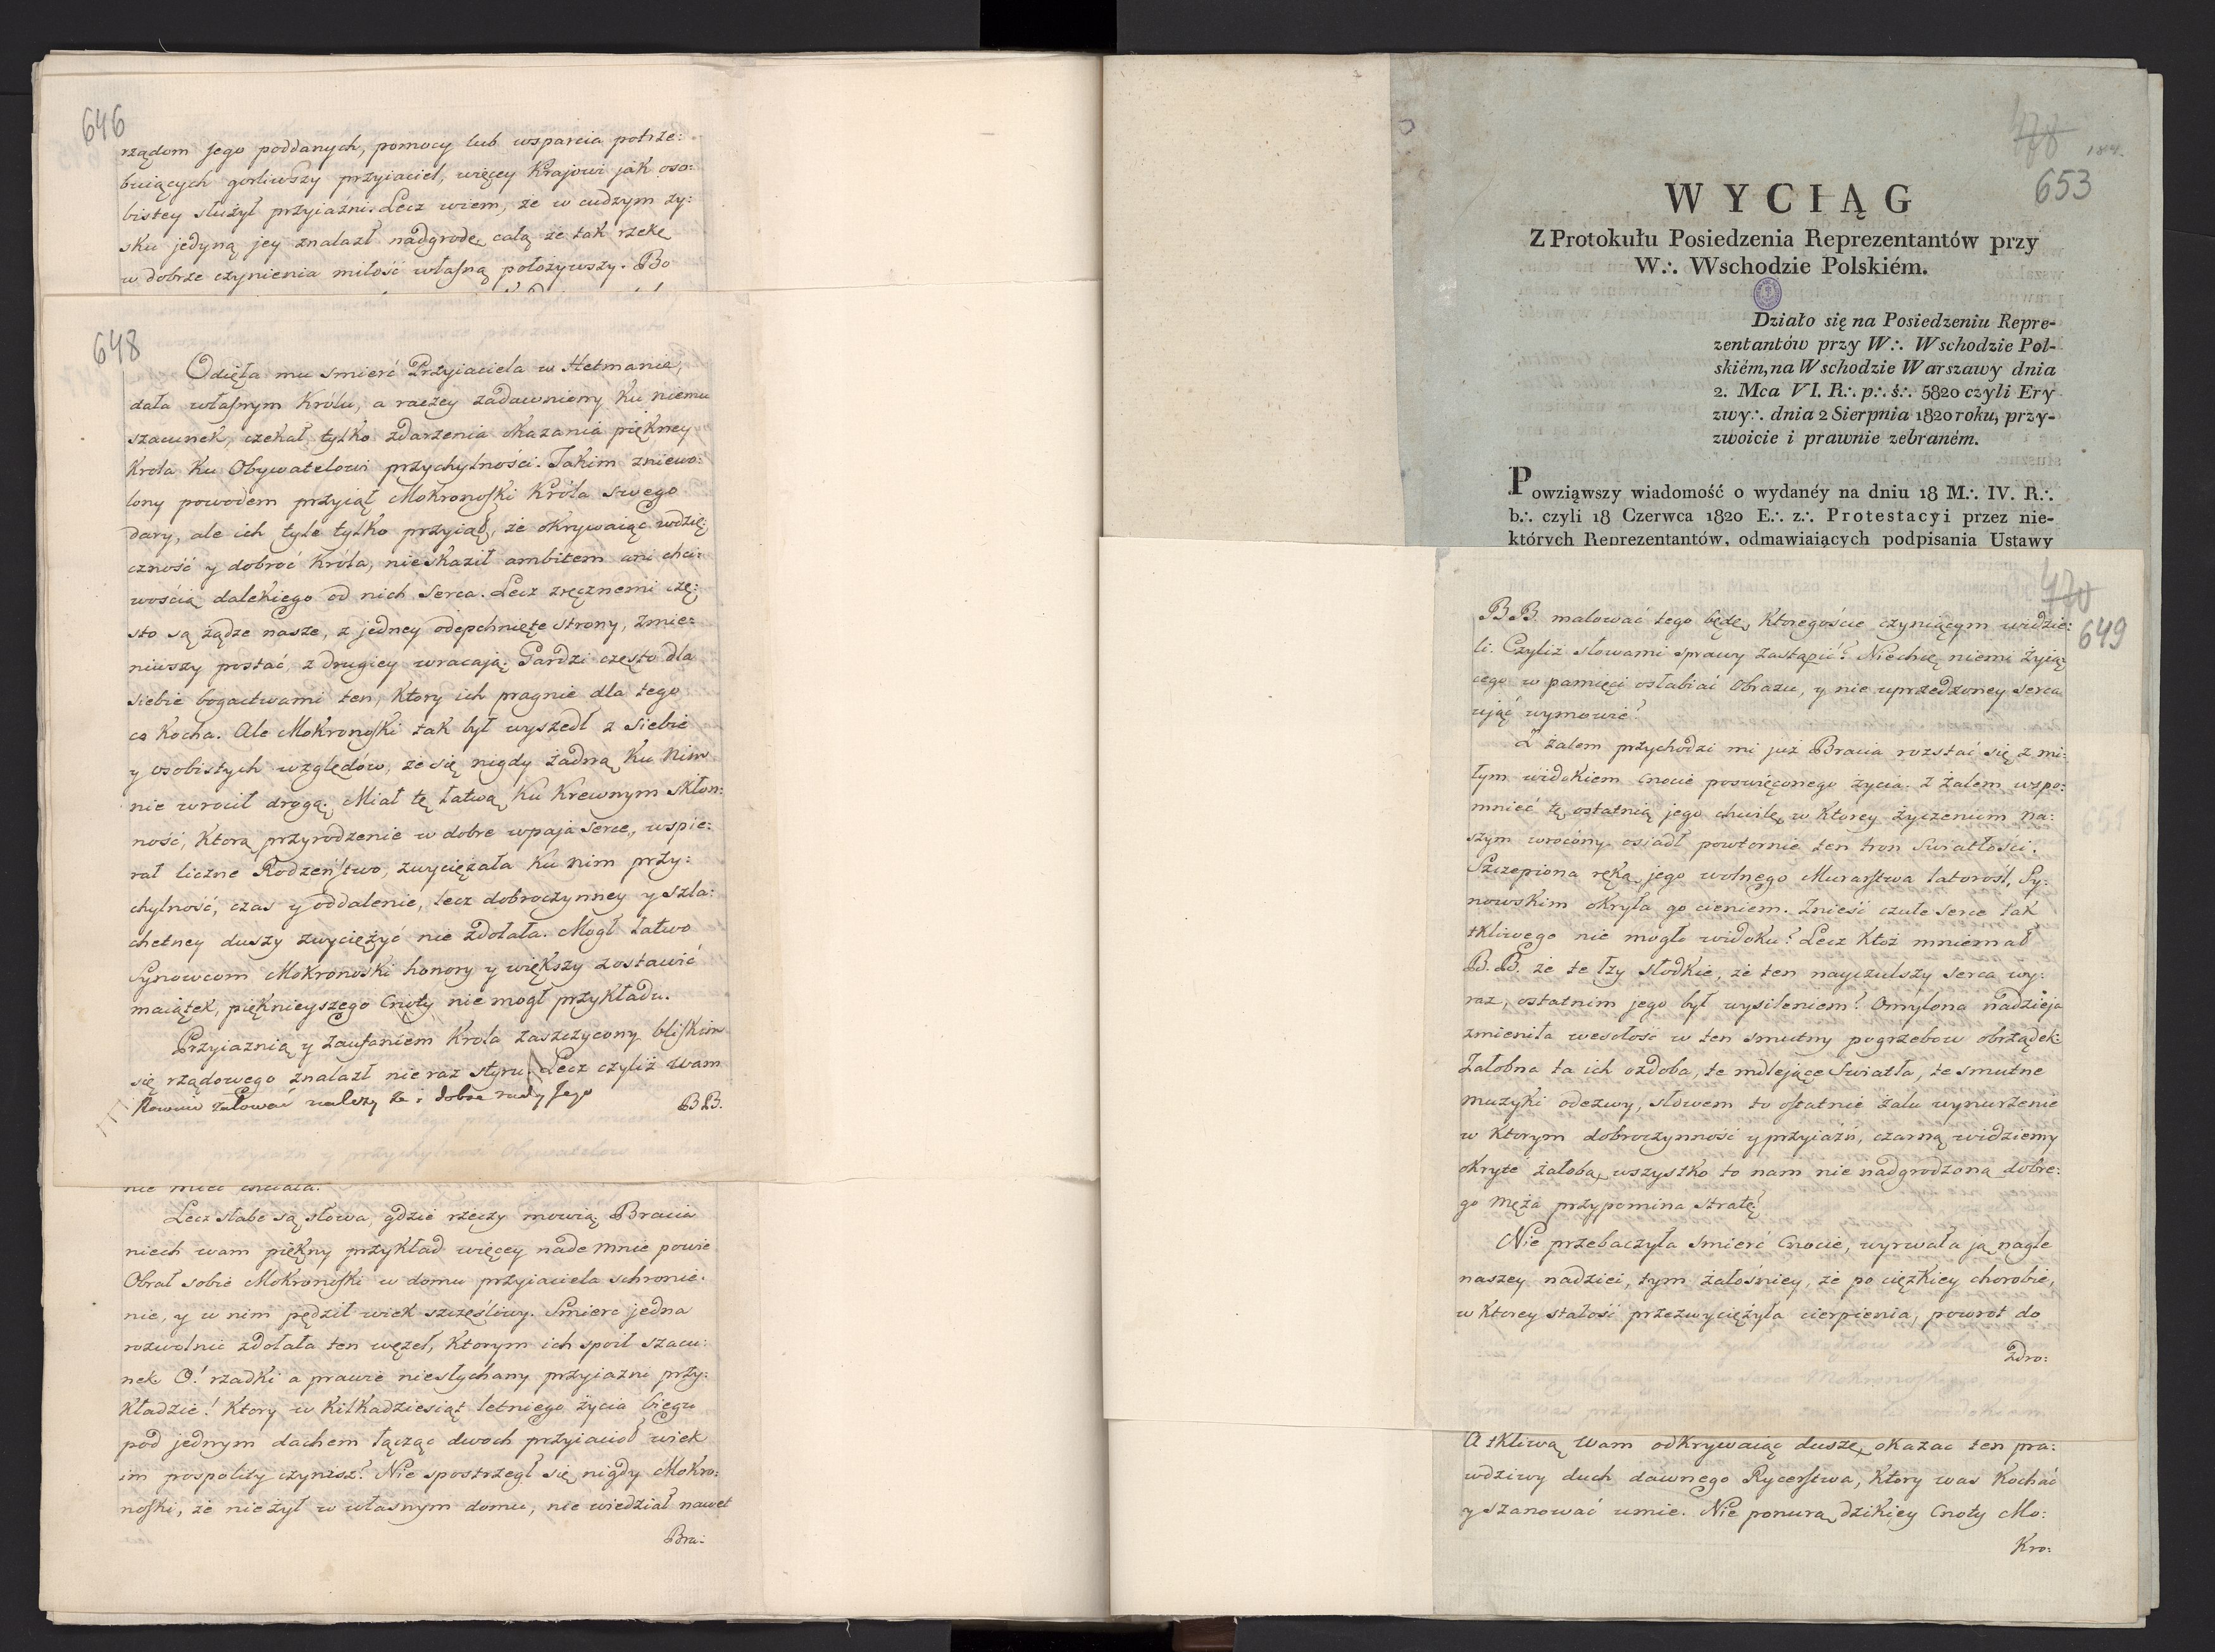 646
rządom jego poddanych, pomocy lub wsparcia potrze:
buiących gorliwszy przyiaciel, więcey Krajowi jak oso:
bistey służył przyiaźni. Lecz wiem, że w cudzym zy:
sku jedyną jey znalazł nadgrodę, całą że tak rzekę
w dobrze czynienia miłość własną położywszy. Bo
648
Odięła mu smierć Przyiaciela w Hetmanie,
dała własnym Królu, a raczey zadawniony Ku niemu
szacunek, czekał tylko zdarzenia okazania piękney
Krola Ku Obywatelowi przychylności. Takim zniewo:
lony powodem przyiął Mokronoski Króla swego
dary, ale ich tyle tylko przyiął, że okrywaiąc wdzię:
czność y dobroć Króla, nieskaził ambitem ani chci:
wością dalekiego od nich Serca. Lecz zręcznemi czę:
sto są żądze nasze, z jedney odepchnięte strony, zmie:
niwszy postać, z drugiey wracają. Gardzi często dla
siebie bogactwami ten, Ktory ich pragnie dla tego
co Kocha. Ale Mokronoski tak był wyszedł z Siebie
y osobistych względów, że się nigdy żadną Ku Nim
nie wrócił drogą. Miał tę łatwą Ku Krewnym skłon:
ność, Ktorą przyrodzenie w dobre wpaja Serce, wspie:
rał liczne Rodzeństwo, zwyciężała Ku nim przy:
chylność, czas y oddalenie, lecz dobroczynney y szla:
chetney duszy zwyciężyć nie zdołała. Mógł łatwo
Synowcom Mokronoski honory y większy zostawić
maiątek, pięknieyszego Cnoty nie mogł przykładu.
Przyiaznią y zaufaniem Krola zaszczycony, bliskim
się rządowego znalazł nie raz styru. Lecz czyliż wam
żałować należy że i dobre rady Jego
BB.
Lecz słabe są słowa, gdzie rzeczy mowią. Bracia
niech wam piękny przykład więcey nade mnie powie
Obrał sobie Mokronoski w domu przyiaciela schronie:
nie, y w nim pędził wiek szczęśliwy. Smierć jedna
rozwolnić zdołała ten węzeł, Ktorym ich spoił szacu:
nek. O! rzadki a prawie niesłychany przyiazni przy:
Kładzie! Ktory w Kilkadziesiąt letniego życia biegu
pod jednym dachem łącząc dwoch przyiacioł wiek
im pospolity czynisz! Nie spostrzegł się nigdy Mokro:
noski, że nie żył w własnym domu, nie wiedział nawet
Bra:
478
653
WYCIĄG
Z Protokułu Posiedzenia Reprezentantów przy
W∴ Wschodzie Polskiém.
Działo się na Posiedzeniu Repre-
zentantów przy W∴ Wschodzie Pol-
skiém, na Wschodzie Warszawy dnia
2. Mca VI. R∴ p∴ ś∴ 5820 czyli Ery
zwy∴ dnia 2 Sierpnia 1820 roku, przy-
zwoicie i prawnie zebraném.
Powziąwszy wiadomość o wydanéy na dniu 18 M∴ IV. R∴
b∴ czyli 18 Czerwca 1820 E∴ z∴ Protestacyi przez nie-
których Reprezentantów, odmawiaiących podpisania Ustawy
470
649
BB. malować tego będę, Ktoregoście czyniącym widzie:
li. Czyliż słowami sprawy zastąpić? Niechcę niemi żyią:
cego w pamięci osłabiać Obrazu, y nie uprzedzoney serca
ująć wymowie!
Z żalem przychodzi mi już Bracia rozstać się z mi:
łym widokiem Cnocie poswięconego życia. Z żalem wspo:
mnieć tę ostatnią jego chwilę, w Ktorey życzeniom na:
szym wrócony osiadł powtornie ten tron Swiatłości.
Szczepiona ręką jego wolnego Murarstwa latorosl, Sy:
nowskim okryła go cieniem. Znieść czułe serce tak
tkliwego nie mogło widoku? Lecz Ktoż mniemał
B.B. że te łzy słodkie, że ten nayczulszy serca wy:
raz, ostatnim jego był wysileniem? Omylona nadzieja
zmieniła wesołość w ten smutny pogrzebow obrządek.
Załobna ta ich ozdoba, te mdlejące Swiatła, te smutne
muzyki odezwy, słowem to ostatnie żalu wynurzenie
w Ktorym dobroczynność y przyiaźń, czarną widziemy
okryte żałobą, wszystko to nam nie nadgrodzoną dobre:
go Męża przypomina stratę!
Nie przebaczyła Smierć Cnocie, wyrwała ją nagle
naszey nadziei, tym żałośniey, że po ciężkiey chorobie,
w Ktorey stałość przezwyciężyła cierpienia, powrot do
Zdro:
A tkliwą Wam odkrywaiąc duszę, okazać ten pra:
wdziwy duch dawnego Rycerstwa, Ktory was Kochać
y szanować umie. Nie ponurą dzikiey Cnoty Mo:
Kro: